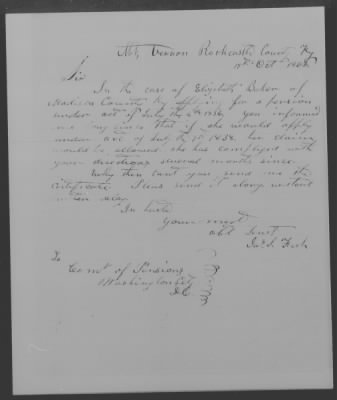 Mt. Vernon Rockcastle County Ky
Oct
Sir
In the case of Elizabeth Baker of
Madison County Ky applying for a pension
under act of July the 4th 1836, you informed
me that if she would apply
under the act of July the 1838 her claim
would be allowed. she has complied with
your directions several months since.
Why then cant you send me the
Certificate. Please send it along without
delay.
In haste
Your most
obt Servt
To
of Pensions
Washington City
D.C.